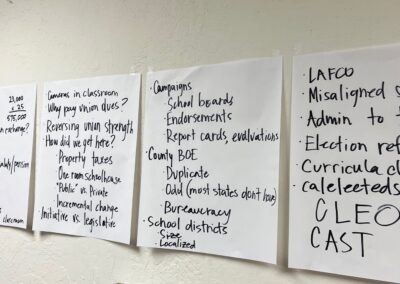 23,000
x 25
575,000
exchange?
classroom
Cameras in classroom
Why pay union dues?
Reversing union strength
How did we get here?
Property taxes
One room schoolhouse
"Public" vs Private
Incremental change
Initiative vs. legislative
· Campaigns
· School boards
· Endorsements
· Report cards, evaluations
· County BOE
· Duplicate
· Odd (most states don't have)
· Bureaucracy
· School districts
· Size
· Localized
· LAFCO
· Misaligned
· Admin to
· Election ref
· Curricula
· caleelecteds
CLEO
CAST